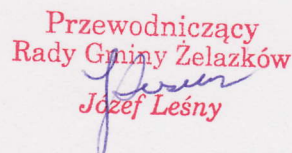 Przewodniczący
Rady Gminy Żelazków
Józef Leśny